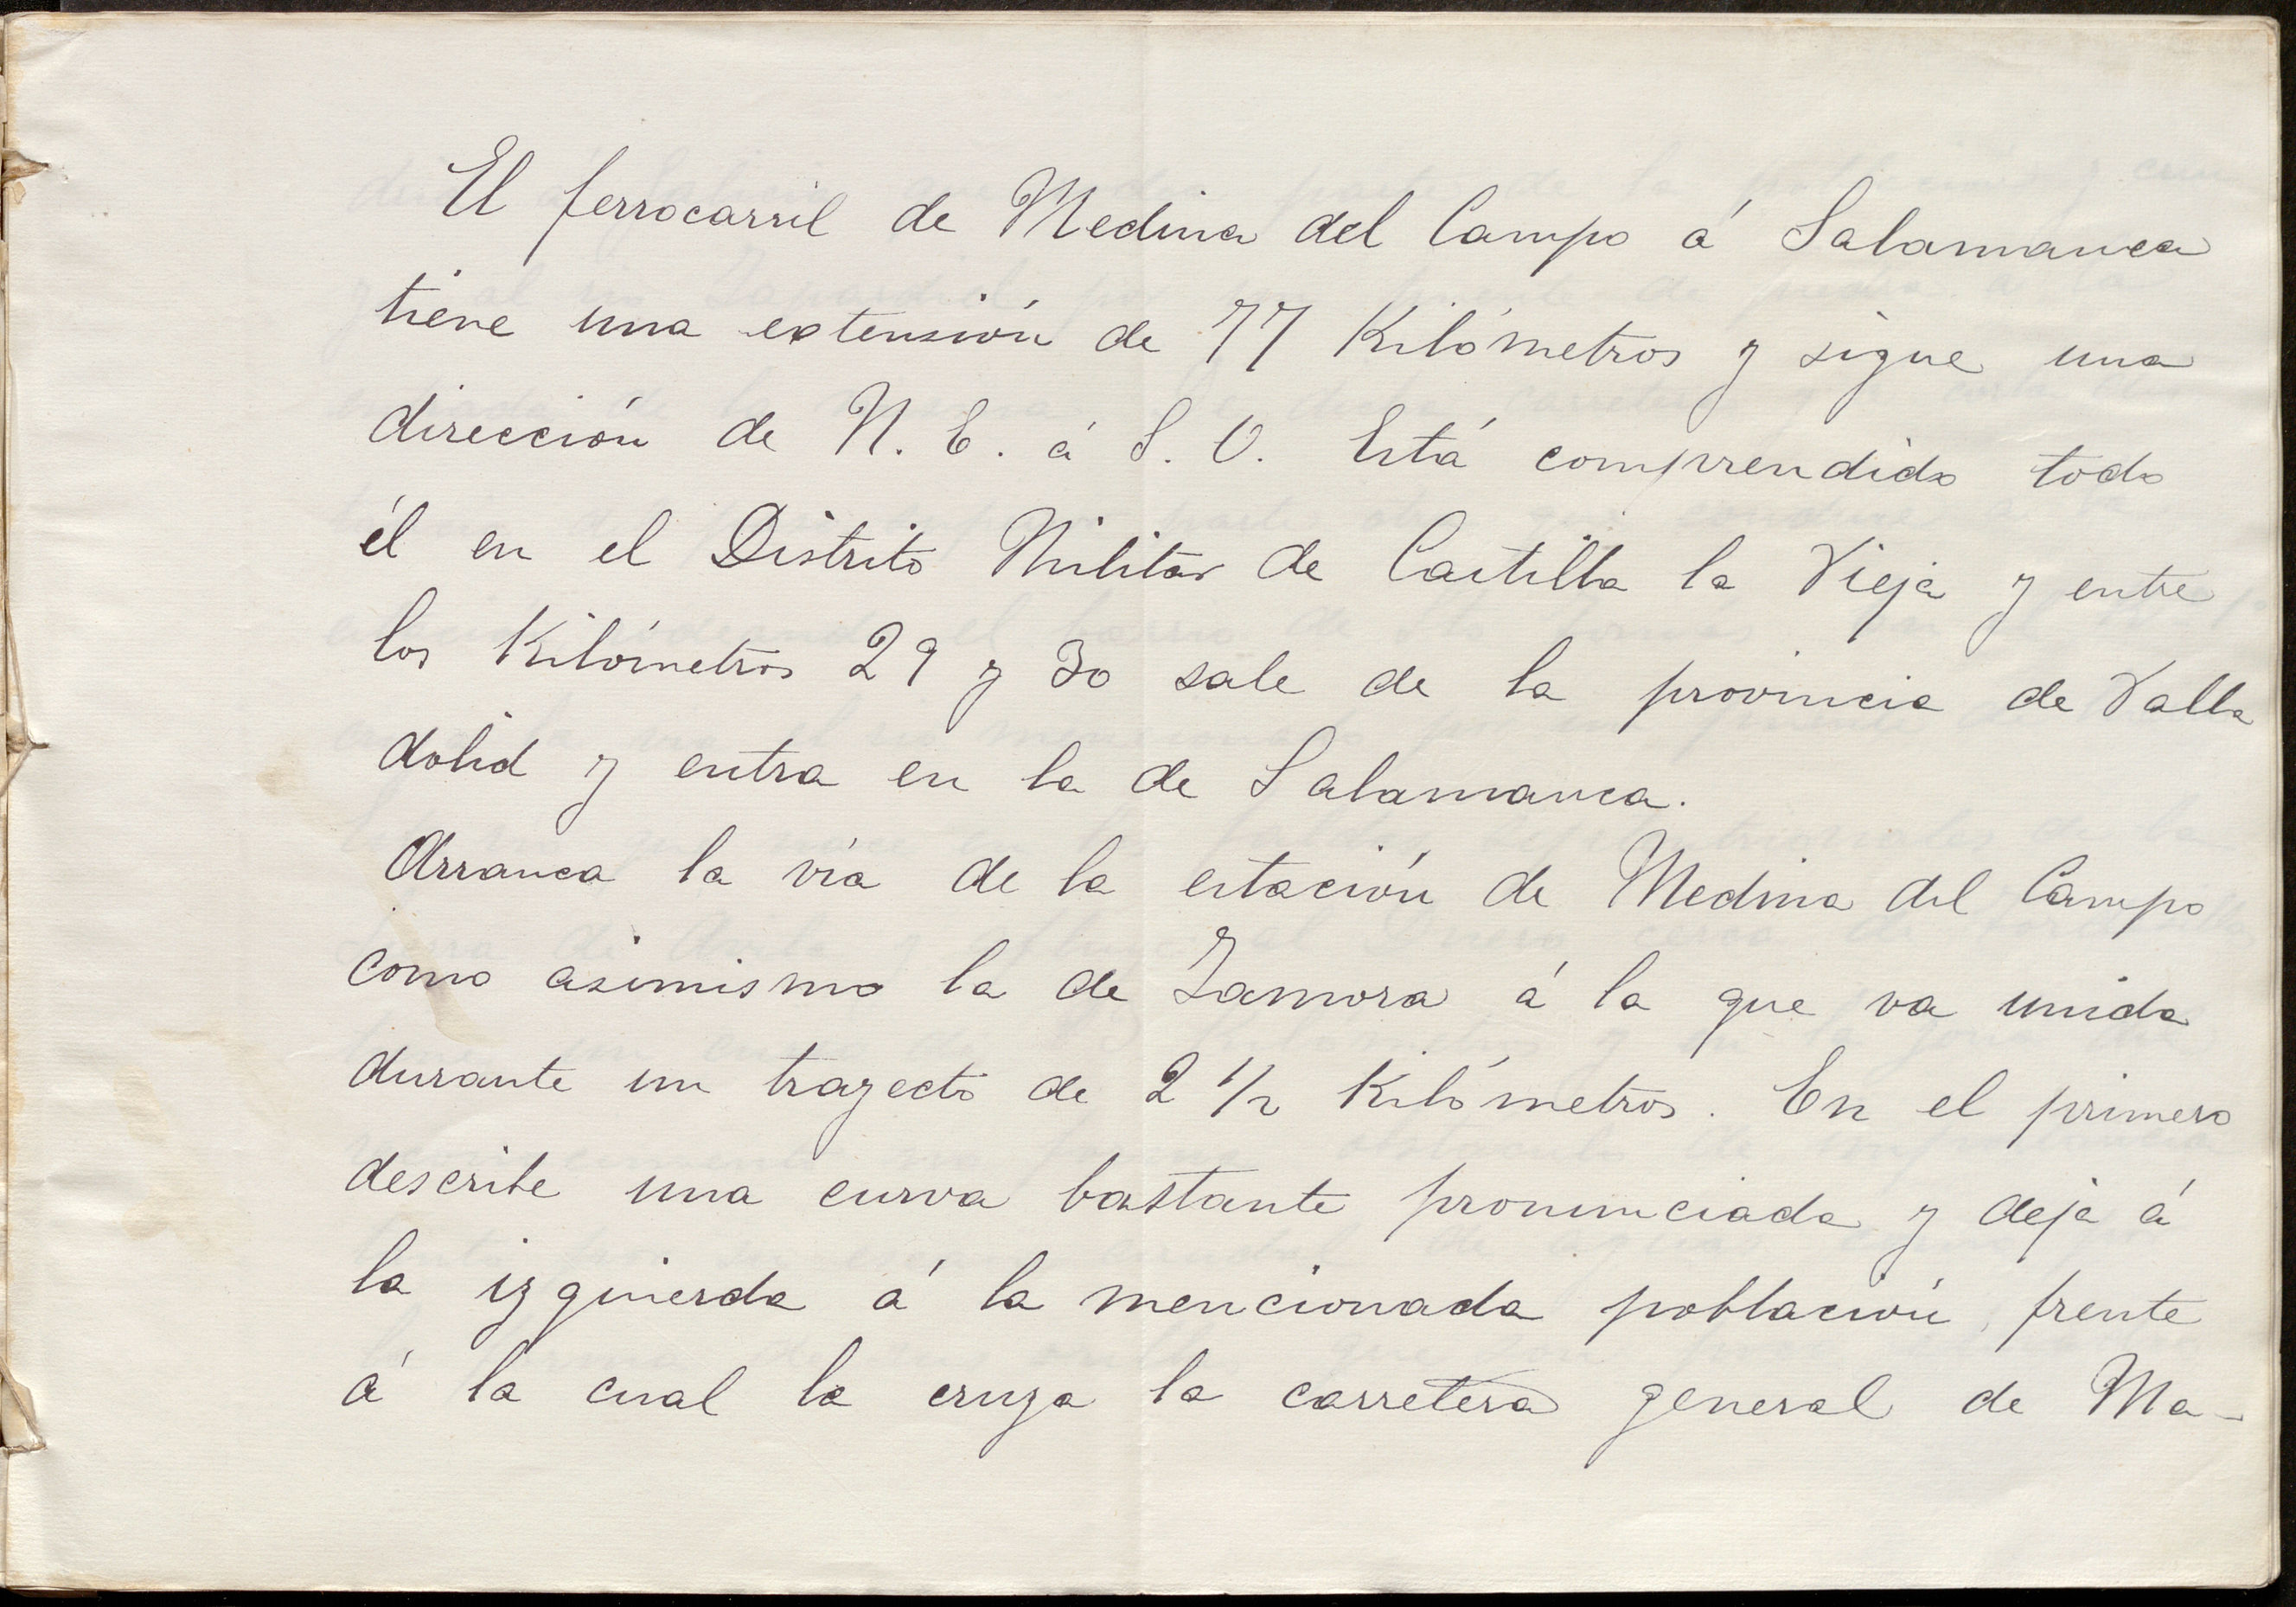 El ferrocarril de Medina del Campo á Salamanca
tiene una extensión de 77 Kilómetros y sigue una
dirección de N. E. á S. O. Está comprendido todo
él en el Distrito Militar de Castilla la Vieja y entre
los Kilómetros 29 y 30 sale de la provincia de Valla
dolid y entra en la de Salamanca.
Arranca la vía de la estación de Medina del Campo
como asimismo la de Zamora á la que va unida
durante un trayecto de 2 1/2 Kilómetros. En el primero
describe una curva bastante pronunciada y deja á
la izquierda á la mencionada población, frente
á la cual la cruza la carretera general de Ma-